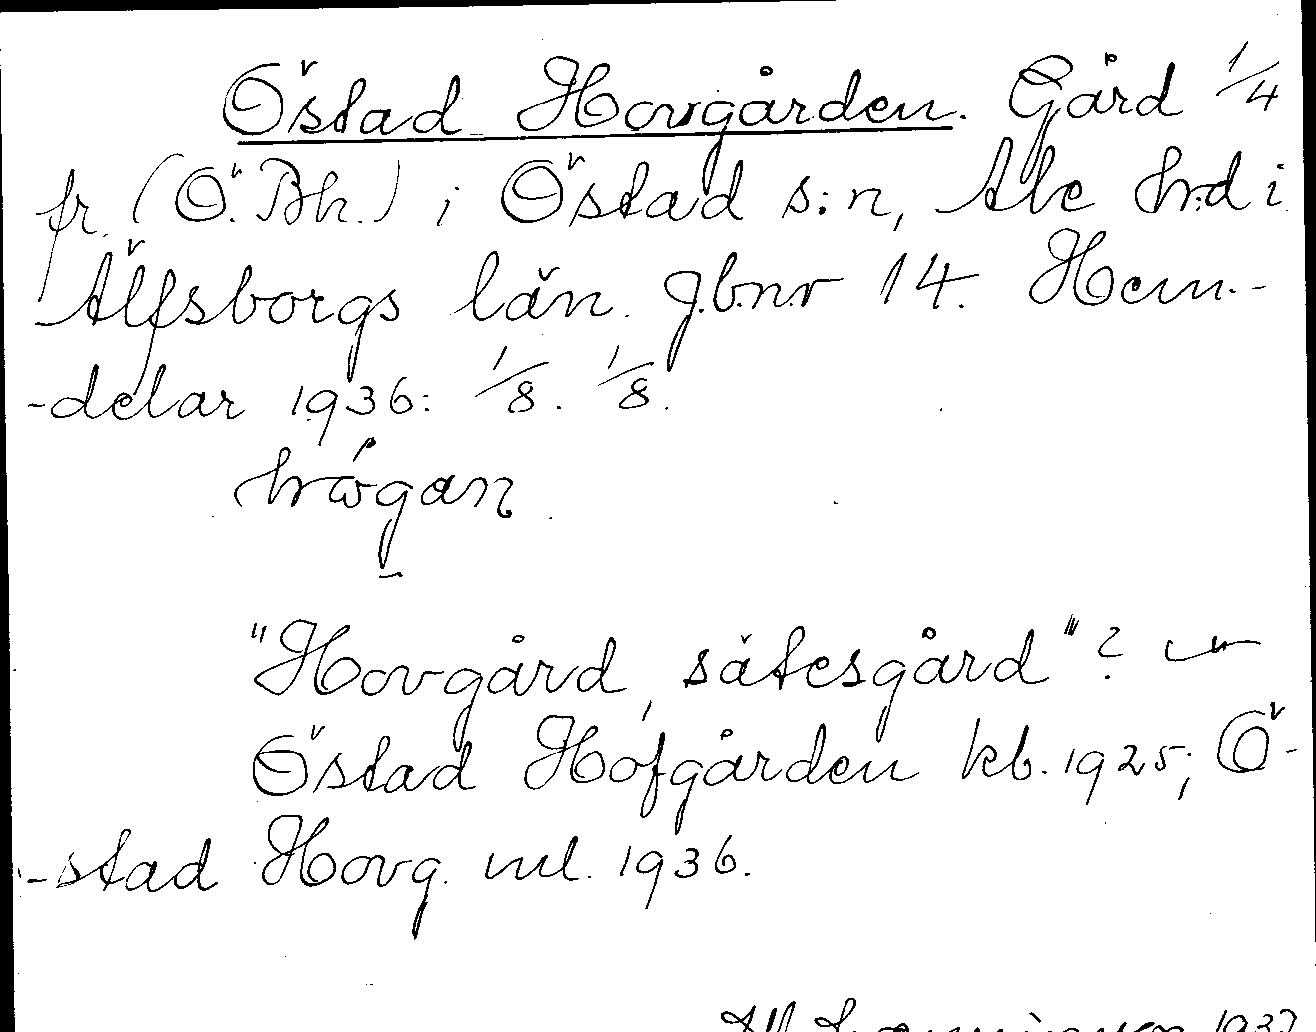 Östad Hovgården. Gård 1/4
fr. (Ö. Bh.) i Östad s:n, Ale hrd i
Älfsborgs län. Jb.nr 14. Hem.-
-delar 1936: 1/8. 1/8.
"Hovgård, sätesgård"?
Östad Hofgården kb. 1925; Ö-
-stad Hovg. ml. 1936.
1937